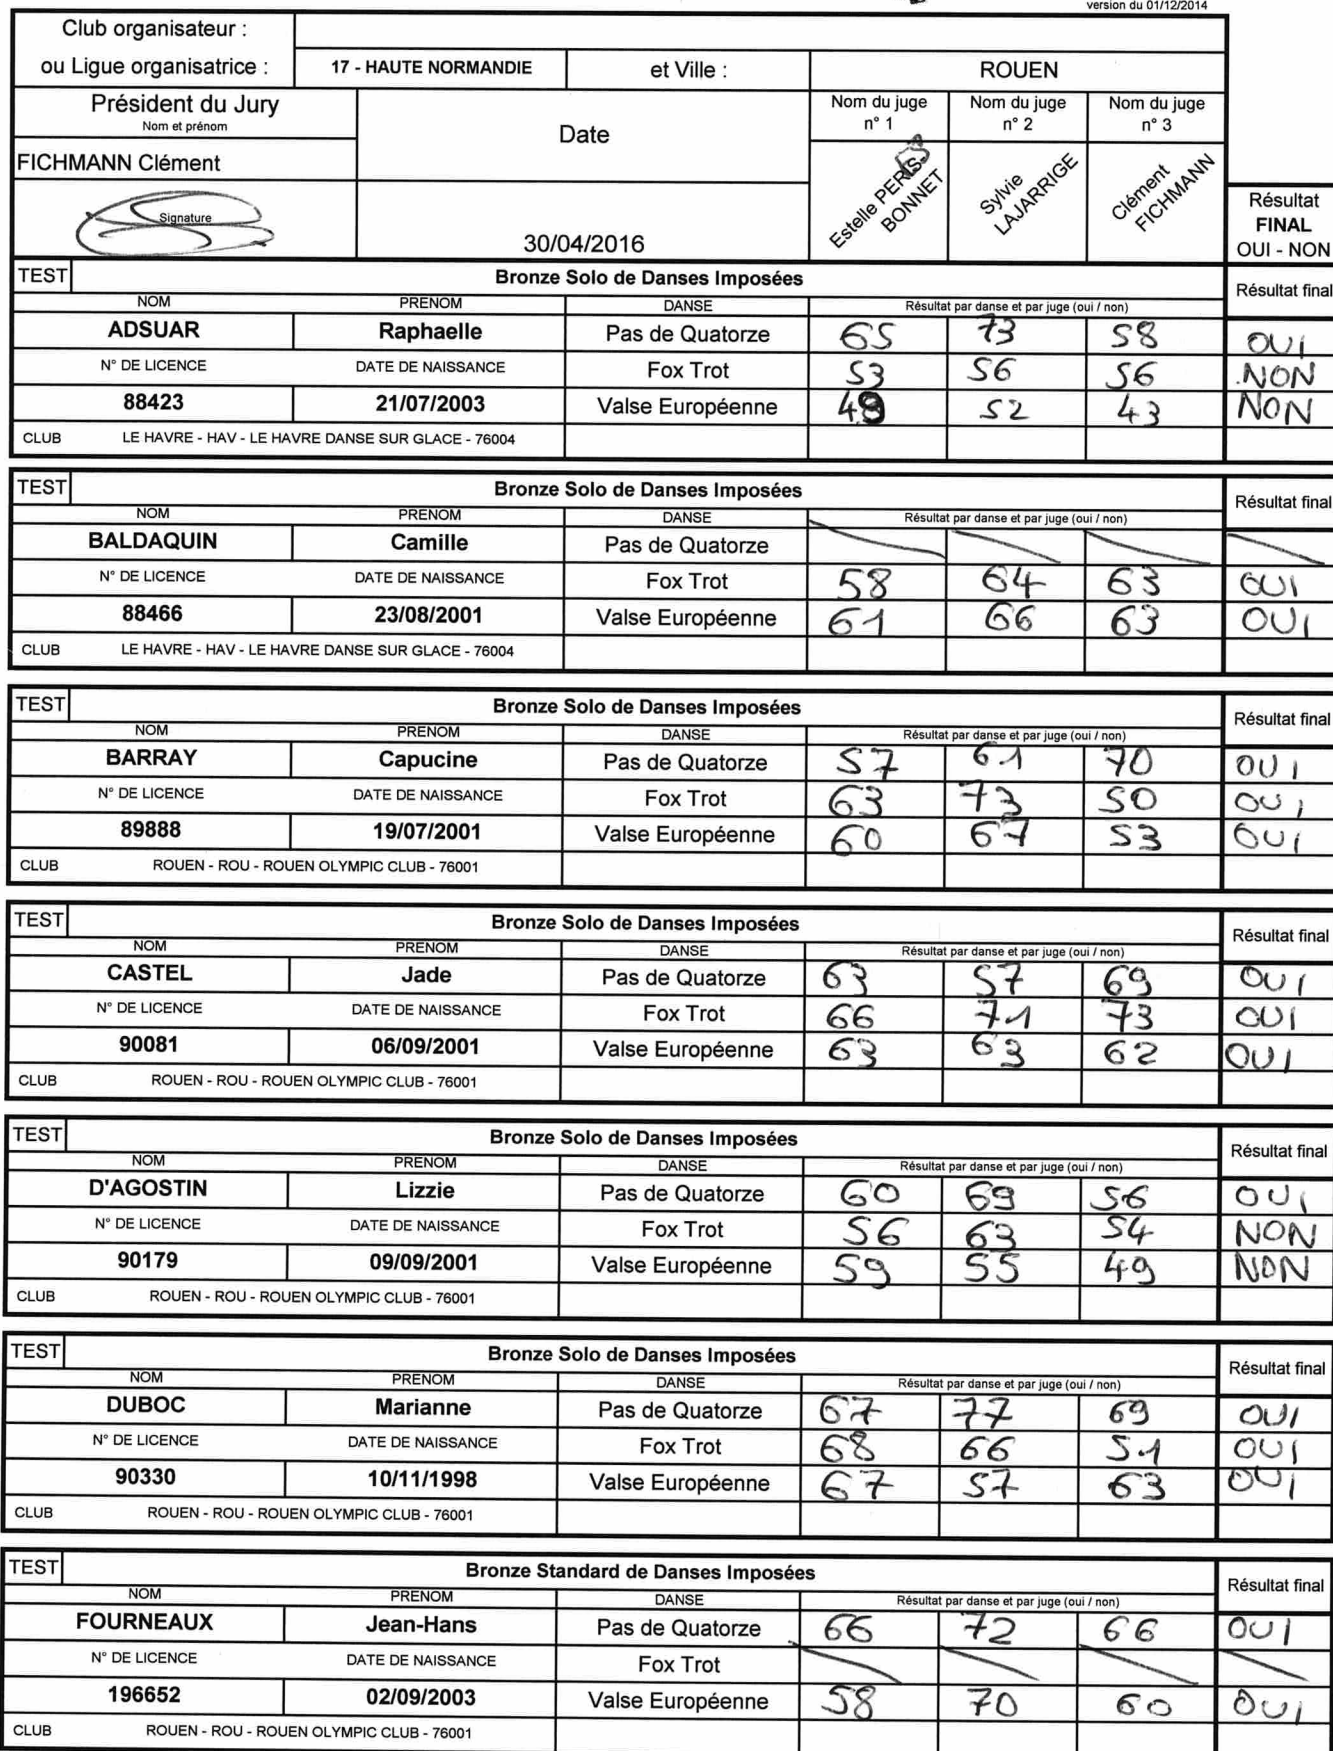 version du 01/12/2014
Club organisateur :
ou Ligue organisatrice : 17 - HAUTE NORMANDIE et Ville : ROUEN
Président du Jury Date Nom du juge n° 1 Nom du juge n° 2 Nom du juge n° 3
Nom et prénom
FICHMANN Clément Estelle PERIS-BONNET Sylvie LAJARRIGE Clément FICHMANN
Signature 30/04/2016 Résultat FINAL OUI - NON
TEST Bronze Solo de Danses Imposées Résultat final
NOM PRENOM DANSE Résultat par danse et par juge (oui / non)
ADSUAR Raphaelle Pas de Quatorze 65 73 58 OUI
N° DE LICENCE DATE DE NAISSANCE Fox Trot 53 56 56 NON
88423 21/07/2003 Valse Européenne 52 43 NON
CLUB LE HAVRE - HAV - LE HAVRE DANSE SUR GLACE - 76004
TEST Bronze Solo de Danses Imposées Résultat final
NOM PRENOM DANSE Résultat par danse et par juge (oui / non)
BALDAQUIN Camille Pas de Quatorze
N° DE LICENCE DATE DE NAISSANCE Fox Trot 58 64 63 OUI
88466 23/08/2001 Valse Européenne 61 66 63 OUI
CLUB LE HAVRE - HAV - LE HAVRE DANSE SUR GLACE - 76004
TEST Bronze Solo de Danses Imposées Résultat final
NOM PRENOM DANSE Résultat par danse et par juge (oui / non)
BARRAY Capucine Pas de Quatorze 57 61 70 OUI
N° DE LICENCE DATE DE NAISSANCE Fox Trot 63 73 50 OUI
89888 19/07/2001 Valse Européenne 60 67 53 OUI
CLUB ROUEN - ROU - ROUEN OLYMPIC CLUB - 76001
TEST Bronze Solo de Danses Imposées Résultat final
NOM PRENOM DANSE Résultat par danse et par juge (oui / non)
CASTEL Jade Pas de Quatorze 63 57 69 OUI
N° DE LICENCE DATE DE NAISSANCE Fox Trot 66 71 73 OUI
90081 06/09/2001 Valse Européenne 63 63 62 OUI
CLUB ROUEN - ROU - ROUEN OLYMPIC CLUB - 76001
TEST Bronze Solo de Danses Imposées Résultat final
NOM PRENOM DANSE Résultat par danse et par juge (oui / non)
D'AGOSTIN Lizzie Pas de Quatorze 60 69 56 OUI
N° DE LICENCE DATE DE NAISSANCE Fox Trot 56 63 54 NON
90179 09/09/2001 Valse Européenne 59 55 49 NON
CLUB ROUEN - ROU - ROUEN OLYMPIC CLUB - 76001
TEST Bronze Solo de Danses Imposées Résultat final
NOM PRENOM DANSE Résultat par danse et par juge (oui / non)
DUBOC Marianne Pas de Quatorze 67 77 69 OUI
N° DE LICENCE DATE DE NAISSANCE Fox Trot 68 66 51 OUI
90330 10/11/1998 Valse Européenne 67 57 63 OUI
CLUB ROUEN - ROU - ROUEN OLYMPIC CLUB - 76001
TEST Bronze Standard de Danses Imposées Résultat final
NOM PRENOM DANSE Résultat par danse et par juge (oui / non)
FOURNEAUX Jean-Hans Pas de Quatorze 66 72 66 OUI
N° DE LICENCE DATE DE NAISSANCE Fox Trot
196652 02/09/2003 Valse Européenne 58 70 60 OUI
CLUB ROUEN - ROU - ROUEN OLYMPIC CLUB - 76001